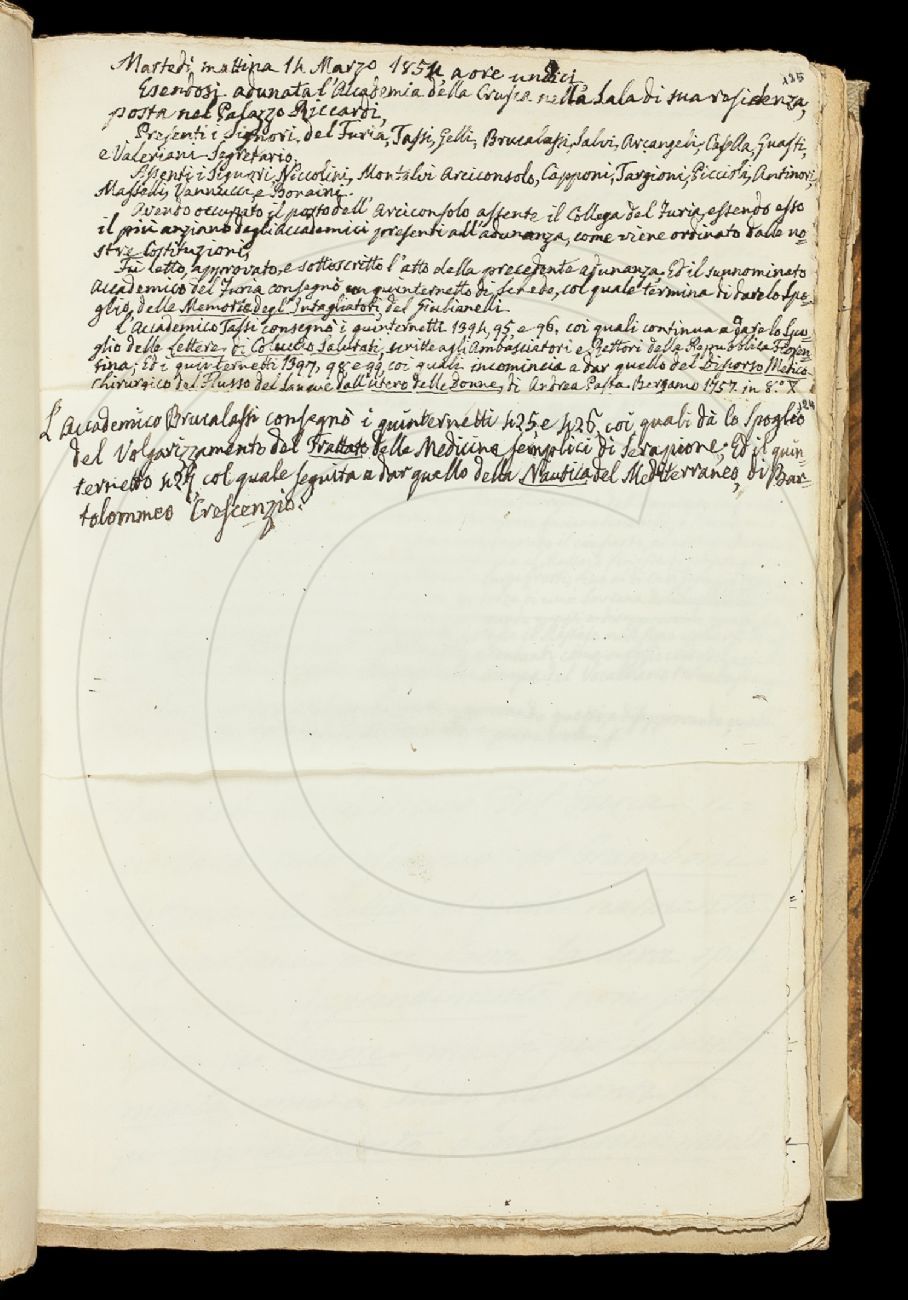 125
Martedì mattina 14 Marzo 1854 a ore undici
Esendosi adunata l'Accademia della Crusca nella Sala di sua residenza,
posta nel Palazzo Riccardi,
Presenti i Signori, del Furia, Tassi, Gelli, Brucalassi, Salvi, Arcangeli, Casella, Guasti,
e Valeriani Segretario.
Assenti i Signori Niccolini, Montalvi Arciconsolo, Capponi, Targioni, Piccioli, Antinori,
Masselli, Vannucci, e Bonaini.
Avendo occupato il posto dell'Arciconsolo assente il Collega del Furia, essendo esso
il più anziano degli Accademici presenti all'adunanza, come viene ordinato dalle no-
stre Costituzioni,
Fu letto, approvato, e sottoscritto l'atto della precedente adunanza. Ed il sunnominato
Accademico del Furia consegnò un quinternetto di Schede, col quale termina di dare lo Spo-
glio delle Memorie degl'Intagliatori, del Giulianelli.
L'Accademico Tassi consegnò i quinternetti 1394, 95, e 96, coi quali continua a dare lo Spo-
glio delle Lettere, di Coluccio Salutati, scritte agli Ambasciatori e Rettori della Repubblica Fioren-
tina; Ed i quinternetti 1397, 98 e 99 coi quali incomincia a dar quello del Discorso Medico
Chirurgico del Flusso del sangue dall'utero delle donne, di Andrea Pasta. Bergamo 1757. in 8.º X
124
L'Accademico Brucalassi consegnò i quinternetti 425 e 426, coi quali dà lo Spoglio
del Volgarizzamento del Trattato della Medicina semplici di Serapione; Ed il quin-
ternetto 427, col quale seguita a dar quello della Nautica del Mediterraneo, di Bar-
tolommeo Crescenzio.